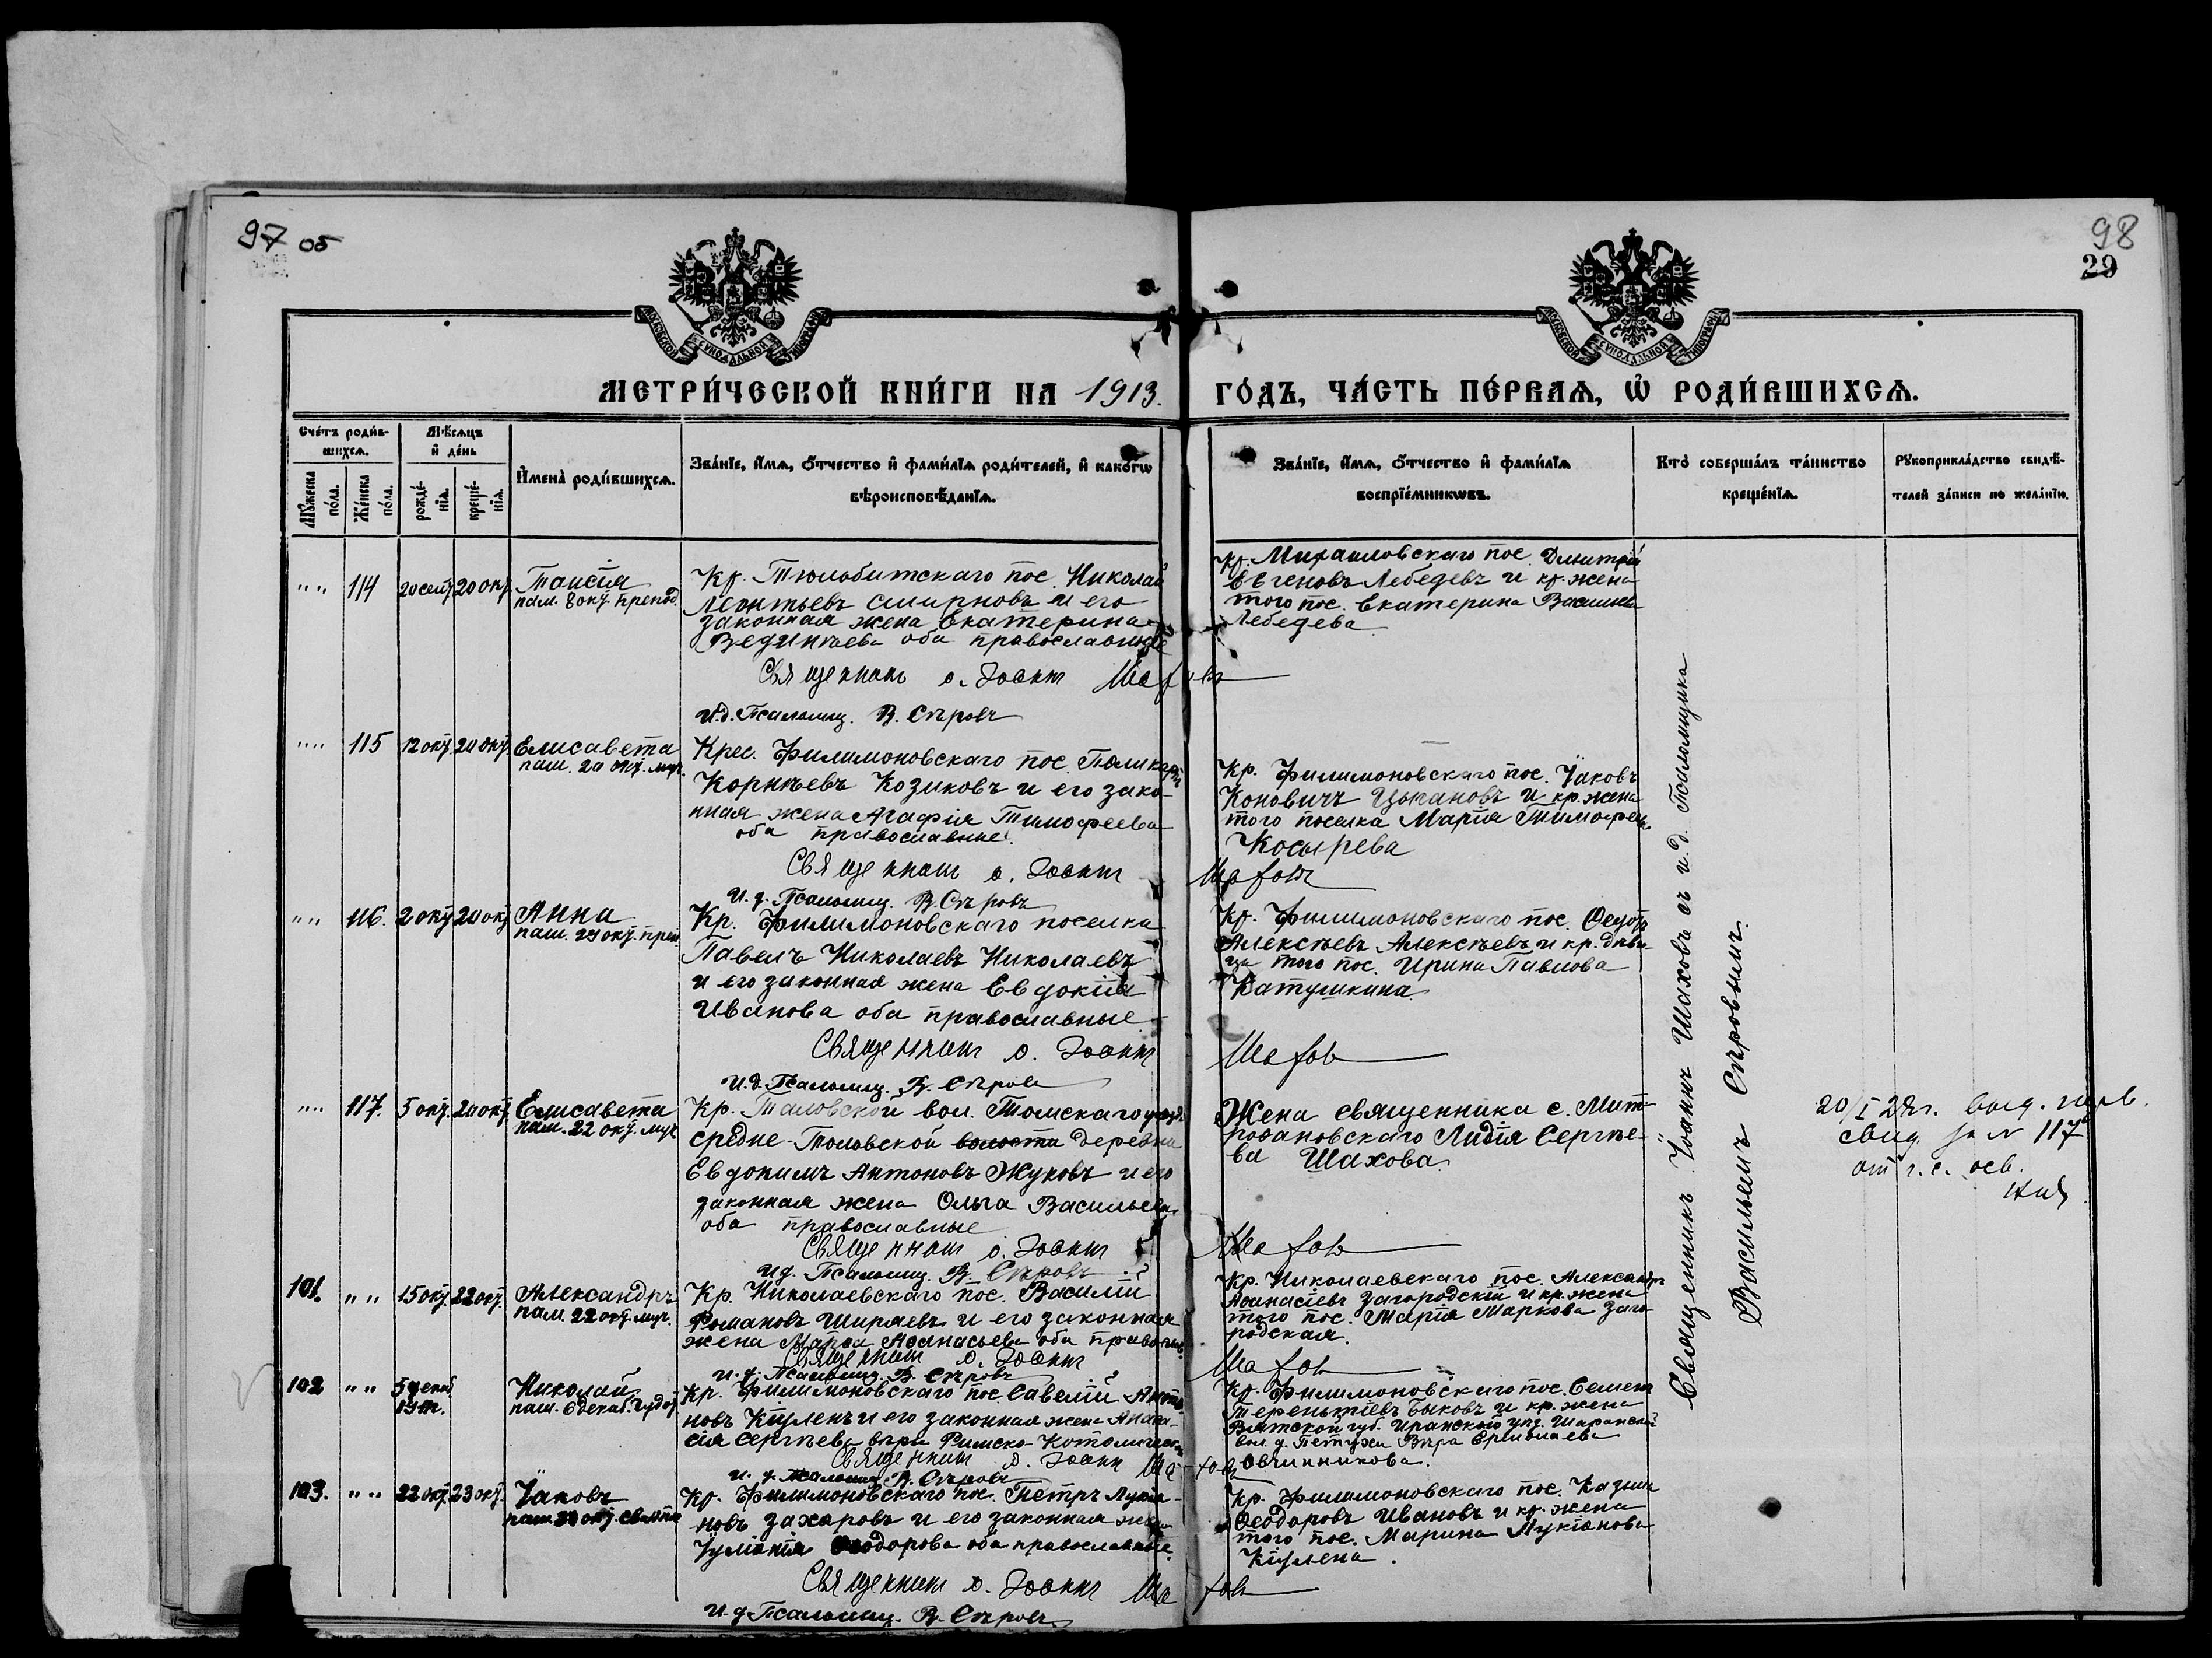 97 об
98
29
МЕТРИ́ЧЕСКОЙ КНИ́ГИ НА 1913. ГО́ДЪ, ЧА́СТЬ ПЕ́РВАѦ, Ѡ҆ РОДИ́ВШИХСѦ.
Сче́тъ роди́в-
шихсѧ.
Мꙋжеска по́ла.
Же́нска по́ла.
Мѣ́сѧцъ и҆ де́нь
рожде́-нїѧ.
креще́-нїѧ.
И҆мена̀ роди́вшихсѧ.
Зва́нїе, и҆́мѧ, о҆́тчество и҆ фами́лїѧ роди́телей, и҆ како́гѡ
вѣроисповѣ́данїѧ.
Зва́нїе, и҆́мѧ, о҆́тчество и҆ фами́лїѧ
воспрїе́мникѡвъ.
Кто̀ соверша́лъ та́инство
креще́нїѧ.
Рꙋкоприкла́дство свидѣ́-
телей за́писи по жела́нїю.
"" 114 20 сент 20 окт. Таисія
пам. 8 окт. препод.
Кр. Тюльбитскаго пос. Николай
Леонтьевъ Смирновъ и его
законная жена Екатерина
оба православные
Священникъ о. Іоаннъ Шаховъ
И.д. Псаломщ. В. Сѣровъ
Кр. Михаиловскаго пос. Дмитрій
Евгеновъ Лебедевъ и кр. жена
того пос. Екатерина Васильева
Лебедева
"" 115 12 окт. 20 окт. Елисавета
пам. 22 окт. муч.
Крес. Филимоновскаго пос.
Корнѣевъ Козиковъ и его зако-
нная жена Агафія Тимофеева
оба православные.
Священникъ о. Іоаннъ Шаховъ
И. д. Псаломщ. В. Сѣровъ
Кр. Филимоновскаго пос. Іаковъ
Коновичъ Цыгановъ и кр. жена
того поселка Марія Тимофеев.
Косырева
"" 116. 2 окт 20 окт Анна
пам. 29 окт. преп.
Кр. Филимоновскаго поселка
Павелъ Николаевъ Николаевъ
и его законная жена Евдокія
Иванова оба православные
Священникъ о. Іоаннъ Шаховъ
И.д. Псаломщ. В. Сѣровъ
Кр. Филимоновскаго пос. Ѳеодоръ
Алексѣевъ Алексѣевъ и кр. дѣви-
ца того пос. Ирина Павлова
Катушкина.
"" 117. 5 окт. 20 окт. Елисавета
пам. 22 окт. муч.
Кр. Таловской вол. Томскаго уѣзд.
средне-Толовской волости деревни
Евдокимъ Антоновъ Жуковъ и его
законная жена Ольга Васильева
оба православные
Священникъ о. Іоаннъ Шаховъ
И д. Псаломщ. В. Сѣровъ
Жена священника с. Мит-
рофановскаго Лидія Сергѣе-
ва Шахова.
20/I 28 г.
свид за N 117
101. "" 15 окт. 22 окт. Александръ
пам. 22 окт. муч.
Кр. Николаевскаго пос. Василій
Романовъ Ширяевъ и его законная
жена Марѳа Аѳанасьева оба православ.
Священникъ о. Іоаннъ Шаховъ
И. д. Псаломщ. В. Сѣровъ
Кр. Николаевскаго пос. Александръ
Аѳанасіевъ Загородскій и кр. жена
того пос. Марія Маркова Заго-
родская.
102 "" 5 декаб. Николай
пам. 6 декаб. Чудот.
Кр. Филимоновскаго пос. Савелій Анто-
новъ Кіуленъ и его законная жена Анаст-
сія Сергѣева вѣры Римско-Католическ.
Священникъ о. Іоаннъ Шаховъ
И. д. Псаломщ. В. Сѣровъ
Кр. Филимоновскаго пос. Семенъ
Терентіевъ Быковъ и кр. жена
Вятской губ. Иранской уѣз. Шаранской
вол. д. Петухи Вѣра Ермолаева
Овчинникова.
103. "" 22 окт. 23 окт. Іаковъ
Кр. Филимоновскаго пос. Петръ Лукіа-
новъ Захаровъ и его законная жена
Іуліанія Ѳеодорова оба православные.
Священникъ о. Іоаннъ Шаховъ
И. д. Псаломщ. В. Сѣровъ
Кр. Филимоновскаго пос.
Ѳеодоровъ Ивановъ и кр. жена
того пос. Марина Лукіанова
Кіулена.
Священникъ Іоаннъ Шаховъ съ и.д. Псаломщика
Василіемъ Сѣровымъ.